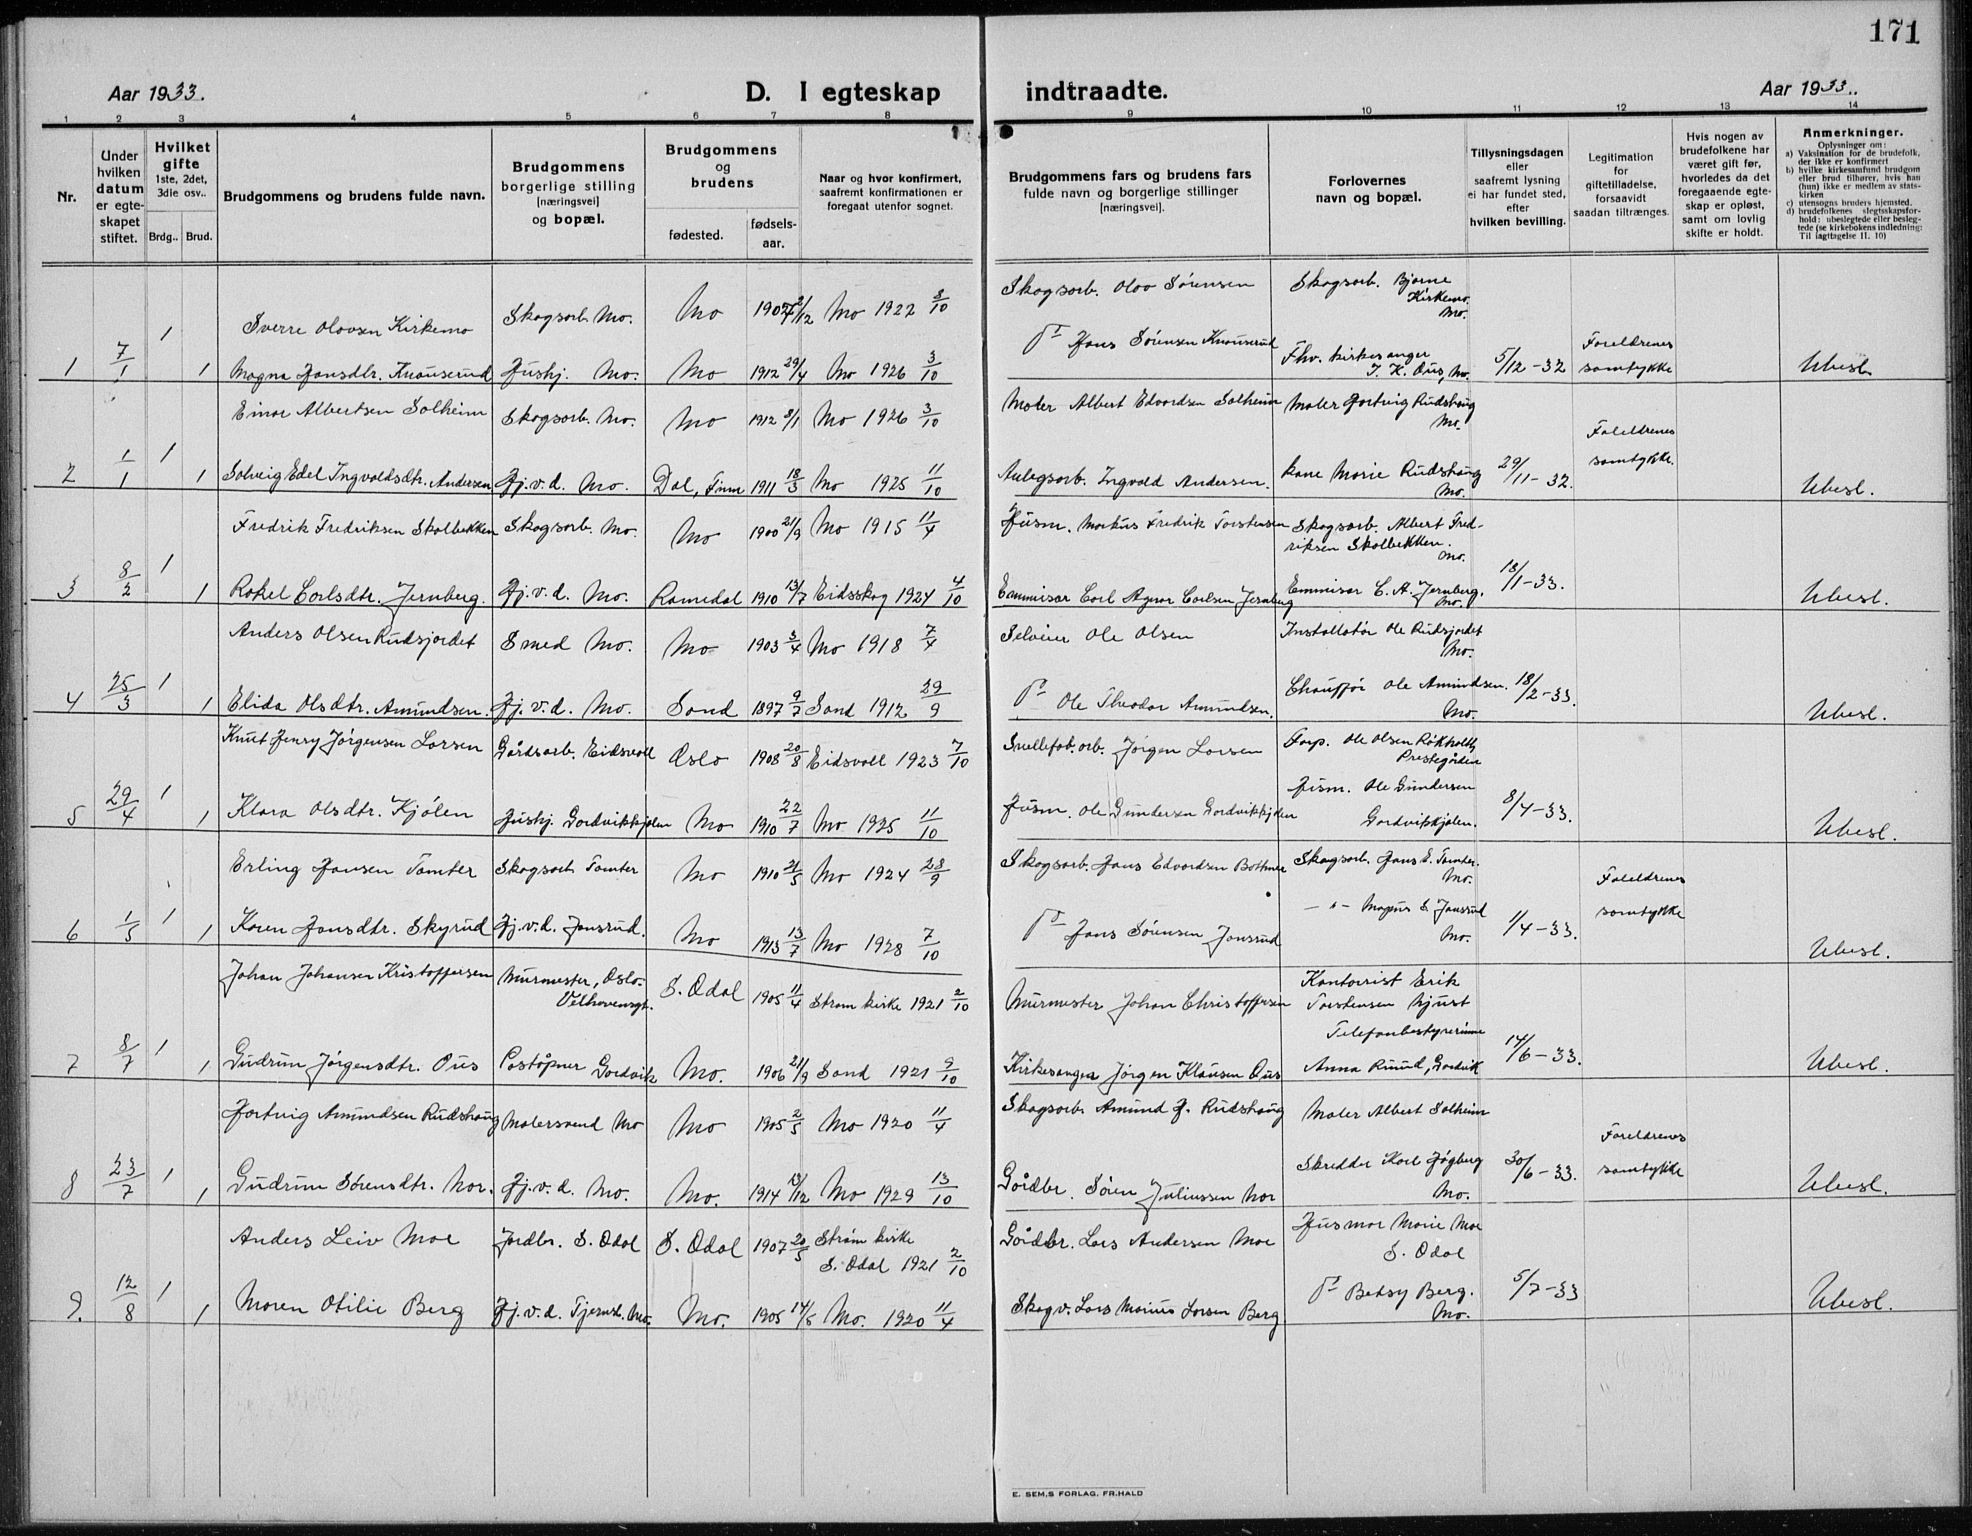 171
Aar 1933. D. I egteskap indtraadte. Aar 1933.
1 2 3 4 5 6 7 8 9 10 11 12 13 14
Nr.
Under
hvilken
datum
er egte-
skapet
stiftet.
Hvilket
gifte
1ste, 2det,
3die osv..
Brdg.. Brud.
Brudgommens og brudens fulde navn.
Brudgommens
borgerlige stilling
[næringsvei]
og bopæl.
Brudgommens
og
brudens
fødested.
fødsels-
aar.
Naar og hvor konfirmert,
saafremt konfirmationen er
foregaat utenfor sognet.
Brudgommens fars og brudens fars
fulde navn og borgerlige stillinger
[næringsvei].
Forlovernes
navn og bopæl.
Tillysningsdagen
eller
saafremt lysning
ei har fundet sted,
efter
hvilken bevilling.
Legitimation
for
giftetilladelse,
forsaavidt
saadan tiltrænges.
Hvis nogen av
brudefolkene har
været gift før,
hvorledes da det
foregaaende egte-
skap er opløst,
samt om lovlig
skifte er holdt.
Anmerkninger.
Oplysninger om:
a) Vaksination for de brudefolk,
der ikke er konfirmert
b) hvilke kirkesamfund brudgom
eller brud tilhører, hvis han
(hun) ikke er medlem av stats-
kirken
c) utensogns bruders hjemsted.
d) brudefolkenes slegtsskapsfor-
hold: ubeslegtede eller besleg-
tede (se kirkebokens indledning:
Til iagttagelse II. 10)
Sverre Olavsen Kirkemo Skogsarb. Mo. Mo Mo 1922 8/10 Skogsarb. Olav Sørensen Skogsarb. Bjarne
Kirkemo.
Mo.
1 7/1 1 1 Magna Hansdtr. Knauserud Hushj. Mo. Mo 1912 29/4 Mo 1926 3/10 Hans Sørensen Knauserud Fhv. kirkesanger
J. K. Ous, Mo. 5/12-32 Foreldrenes
samtykke Ubesl.
Einar Albertsen Solheim Skogsarb. Mo. Mo 1912 8/1 Mo 1926 3/10 Maler Albert Edvardsen Solheim Maler Hartvig Rudshaug
Mo.
2 1/1 1 1 Solveig Edel Ingvaldsdtr. Andersen Hj.v.d. Mo. Dal, Finm 1911 18/3 Mo 1925 11/10 Anlegsarb. Ingvald Andersen. kone Marie Rudshaug
Mo. 29/11-32. Foreldrenes
samtykke. Ubesl.
Fredrik Fredriksen Skolbekken Skogsarb. Mo. Mo 1900 21/9 Mo 1915 11/4 Husm. Markus Fredrik Torstensen Skogsarb. Albert Fred-
riksen Skolbekken.
Mo.
3 8/2 1 1 Rakel Carlsdtr. Jernberg. Hj.v.d. Mo. Romedal 1910 13/7 Eidsskog 1924 4/10 Emmisær Carl Agnar Carlsen Jernberg Emmisær C. A. Jernberg.
Mo. 18/1-33. Ubesl.
Anders Olsen Rudsjordet Smed Mo. Mo 1903 3/4 Mo 1918 7/4 Selveier Ole Olsen Installatør Ole Rudsjordet
Mo.
4 25/3 1 1 Elida Olsdtr. Amundsen. Hj.v.d. Mo. Sand 1897 9/7 Sand 1912 29/9 Ole Theodor Amundsen. Chauffør Ole Amundsen.
Mo. 18/2-33. Ubesl.
Knut Henry Jørgensen Larsen Gårdsarb. Eidsvoll Oslo 1908 20/8 Eidsvoll 1923 7/10 Snellefab.arb. Jørgen Larsen Forp. Ole Olsen Røkholt,
Prestegården
5 29/4 1 1 Klara Olsdtr. Kjølen Hushj. Gardvikkjølen Mo 1910 22/7 Mo 1925 11/10 Husm. Ole Gundersen Gardvikkjølen Husm. Ole Gundersen
Gardvikkjølen. 8/4-33. Ubesl.
Erling Hansen Tomter Skogsarb. Tomter Mo 1910 21/5 Mo 1924 28/9 Skogsarb. Hans Edvardsen Bottner Skogsarb. Hans E. Tomter.
Mo.
6 1/5 1 1 Karen Hansdtr. Skyrud Hj.v.d. Jonsrud. Mo 1913 13/7 Mo 1928 7/10 Hans Sørensen Jonsrud — " — Magnus S. Jonsrud
Mo. 1/4-33. Foreldrenes
samtykke Ubesl.
Johan Johansen Kristoffersen Murmester, Oslo.
Velhavensgt. S. Odal 1905 11/4 Strøm kirke 1921 2/10 Murmester Johan Christoffersen Kontorist Erik
Torstensen Njust
7 8/7 1 1 Gudrun Jørgensdtr. Ous Postøpner Gardvik Mo. 1906 21/9 Sand 1921 9/10 Kirkesanger Jørgen Klausen Ous Telefonbestyrerinne
Anna Ruud, Gardvik 14/6-33. Ubesl.
Hartvig Amundsen Rudshaug Malersvend Mo Mo 1905 2/5 Mo 1920 11/4 Skogsarb. Amund H. Rudshaug Maler Albert Solheim
8 23/7 1 1 Gudrun Sørensdtr. Nor. Hj.v.d. Mo. Mo. 1914 13/12 Mo 1929 13/10 Gårdbr. Søren Juliussen Nor Skredder Karl Høgberg
Mo. 30/6-33. Foreldrenes
samtykke Ubesl.
Anders Leiv Moe Jordbr. S. Odal S. Odal 1907 20/5 Strøm kirke
S. Odal 1921 2/10 Gårdbr. Lars Andersen Moe Husmor Marie Moe
S. Odal
9. 12/8 1 1 Maren Otilie Berg Hj.v.d. Tjernsl. Mo. Mo. 1905 14/5 Mo. 1920 11/4 Skogv. Lars Marius Larsen Berg Betsy Berg.
Mo. 5/7-33 Ubesl.
E. SEM,S FORLAG, FR.HALD